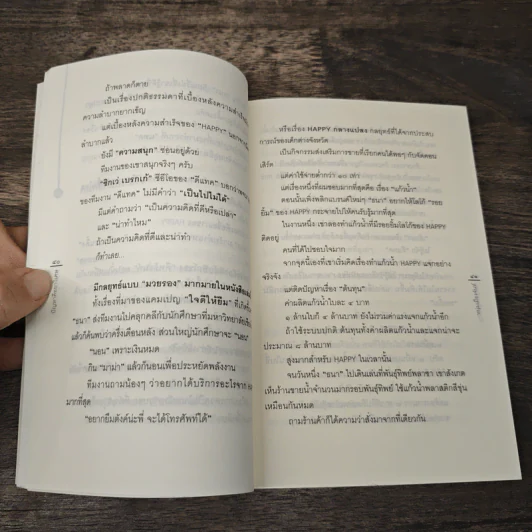 ถ้าพลาดก็ตาย
เป็นเรื่องปกติธรรมดาที่เบื้องหลังความสำเร็จ
ความลำบากยากเข็ญ
แต่เบื้องหลังความสำเร็จของ "HAPPY" นอกจาก
ลำบากแล้ว
ยังมี "ความสนุก" ซ่อนอยู่ด้วย
ทีมงานของเขาสนุกจริงๆ ครับ
"ซิกเว่ เบรกเก้" ซีอีโอของ "ดีแทค" บอกว่า
ของทีมงาน "ดีแทค" ไม่มีคำว่า "เป็นไปไม่ได้"
มีแต่คำถามว่า "เป็นความคิดที่ดีหรือเปล่า"
และ "น่าทำไหม"
ถ้าเป็นความคิดที่ดีและน่าทำ
ก็ทำเลย...
มีกลยุทธ์แบบ "มวยรอง" มากมายในหนังสือ
ทั้งเรื่องที่มาของแคมเปญ "ใจดีให้ยืม" ที่
"ธนา" ส่งทีมงานไปคลุกคลีกับนักศึกษาที่มหาวิทยาลัย
แล้วก็ค้นพบว่าครึ่งเดือนหลัง ส่วนใหญ่นักศึกษาจะ "นอน"
"นอน" เพราะเงินหมด
กิน "มาม่า" แล้วก็นอนเพื่อประหยัดพลังงาน
ทีมงานถามน้องๆ ว่าอยากได้บริการอะไรจาก
มากที่สุด
"อยากยืมตังค์น่ะพี่ จะได้โทรศัพท์ได้"
หรือเรื่อง HAPPY กลางแปลง กลยุทธ์ที่ได้จากประสบ
การณ์ของเด็กต่างจังหวัด
เป็นกิจกรรมส่งเสริมการขายที่เรียกคนได้พอๆ กับจัดคอน
เสิร์ต
แต่ค่าใช้จ่ายต่ำกว่า ๑๐ เท่า
แต่เรื่องหนึ่งที่ผมชอบมากที่สุดคือ เรื่อง "แก้วน้ำ"
ตอนนั้นเพิ่งพลิกแบรนด์ใหม่ๆ "ธนา" อยากให้โลโก้ "รอย
ยิ้ม" ของ HAPPY กระจายไปให้คนรับรู้มากที่สุด
ในงานหนึ่ง เขาลองทำแก้วน้ำที่มีรอยยิ้มโลโก้ของ HAPPY
ติดอยู่
คนที่ได้ไปชอบใจมาก
จากจุดนี้เองที่เขาเริ่มคิดเรื่องทำแก้วน้ำ HAPPY แจกอย่าง
จริงจัง
แต่ติดปัญหาเรื่อง "ต้นทุน"
ค่าผลิตแก้วน้ำใบละ ๔ บาท
๑ ล้านใบก็ ๔ ล้านบาท ยังไม่รวมค่าแรงแจกแก้วอีก
ถ้าใช้ระบบปกติ ต้นทุนทั้งค่าผลิตแก้วน้ำและแจกน่าจะ
ประมาณ ๘ ล้านบาท
สูงมากสำหรับ HAPPY ในเวลานั้น
จนวันหนึ่ง "ธนา" ไปเดินเล่นที่พันธุ์ทิพย์พลาซา เขาสังเกต
เห็นร้านขายน้ำจำนวนมากรอบพันธุ์ทิพย์ ใช้แก้วน้ำพลาสติกสีขุ่น
เหมือนกันหมด
ถามร้านค้าก็ได้ความว่าสั่งมาจากที่เดียวกัน